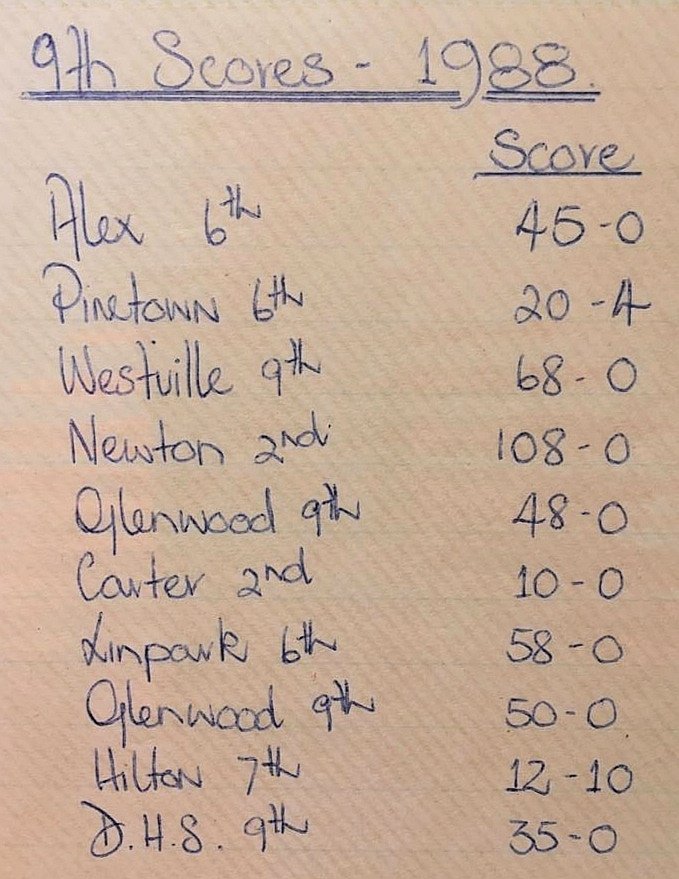 9th Scores - 1988.
Score
Alex 6th 45-0
Pinetown 6th 20-4
Westville 9th 68-0
Newton 2nd 108-0
Glenwood 9th 48-0
Carter 2nd 10-0
Linpark 6th 58-0
Glenwood 9th 50-0
Hilton 7th 12-10
D.H.S. 9th 35-0